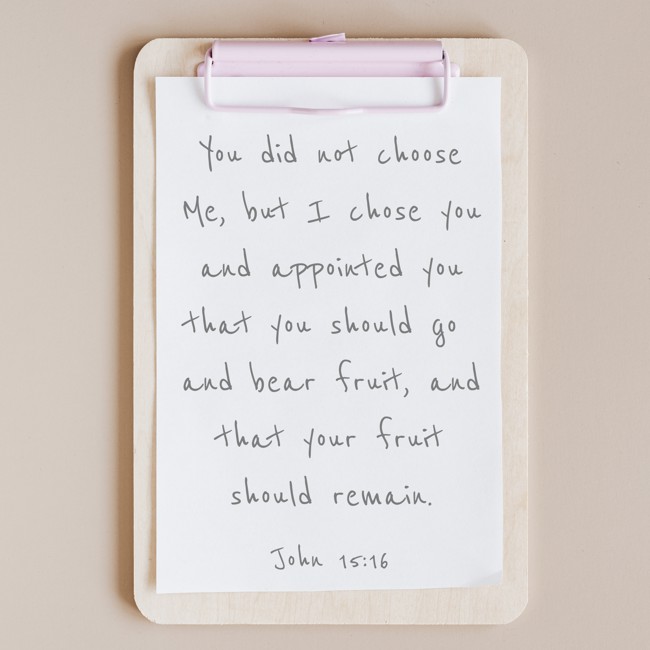 You did not choose
Me, but I chose you
and appointed you
that you should go
and bear fruit, and
that your fruit
should remain.
John 15:16